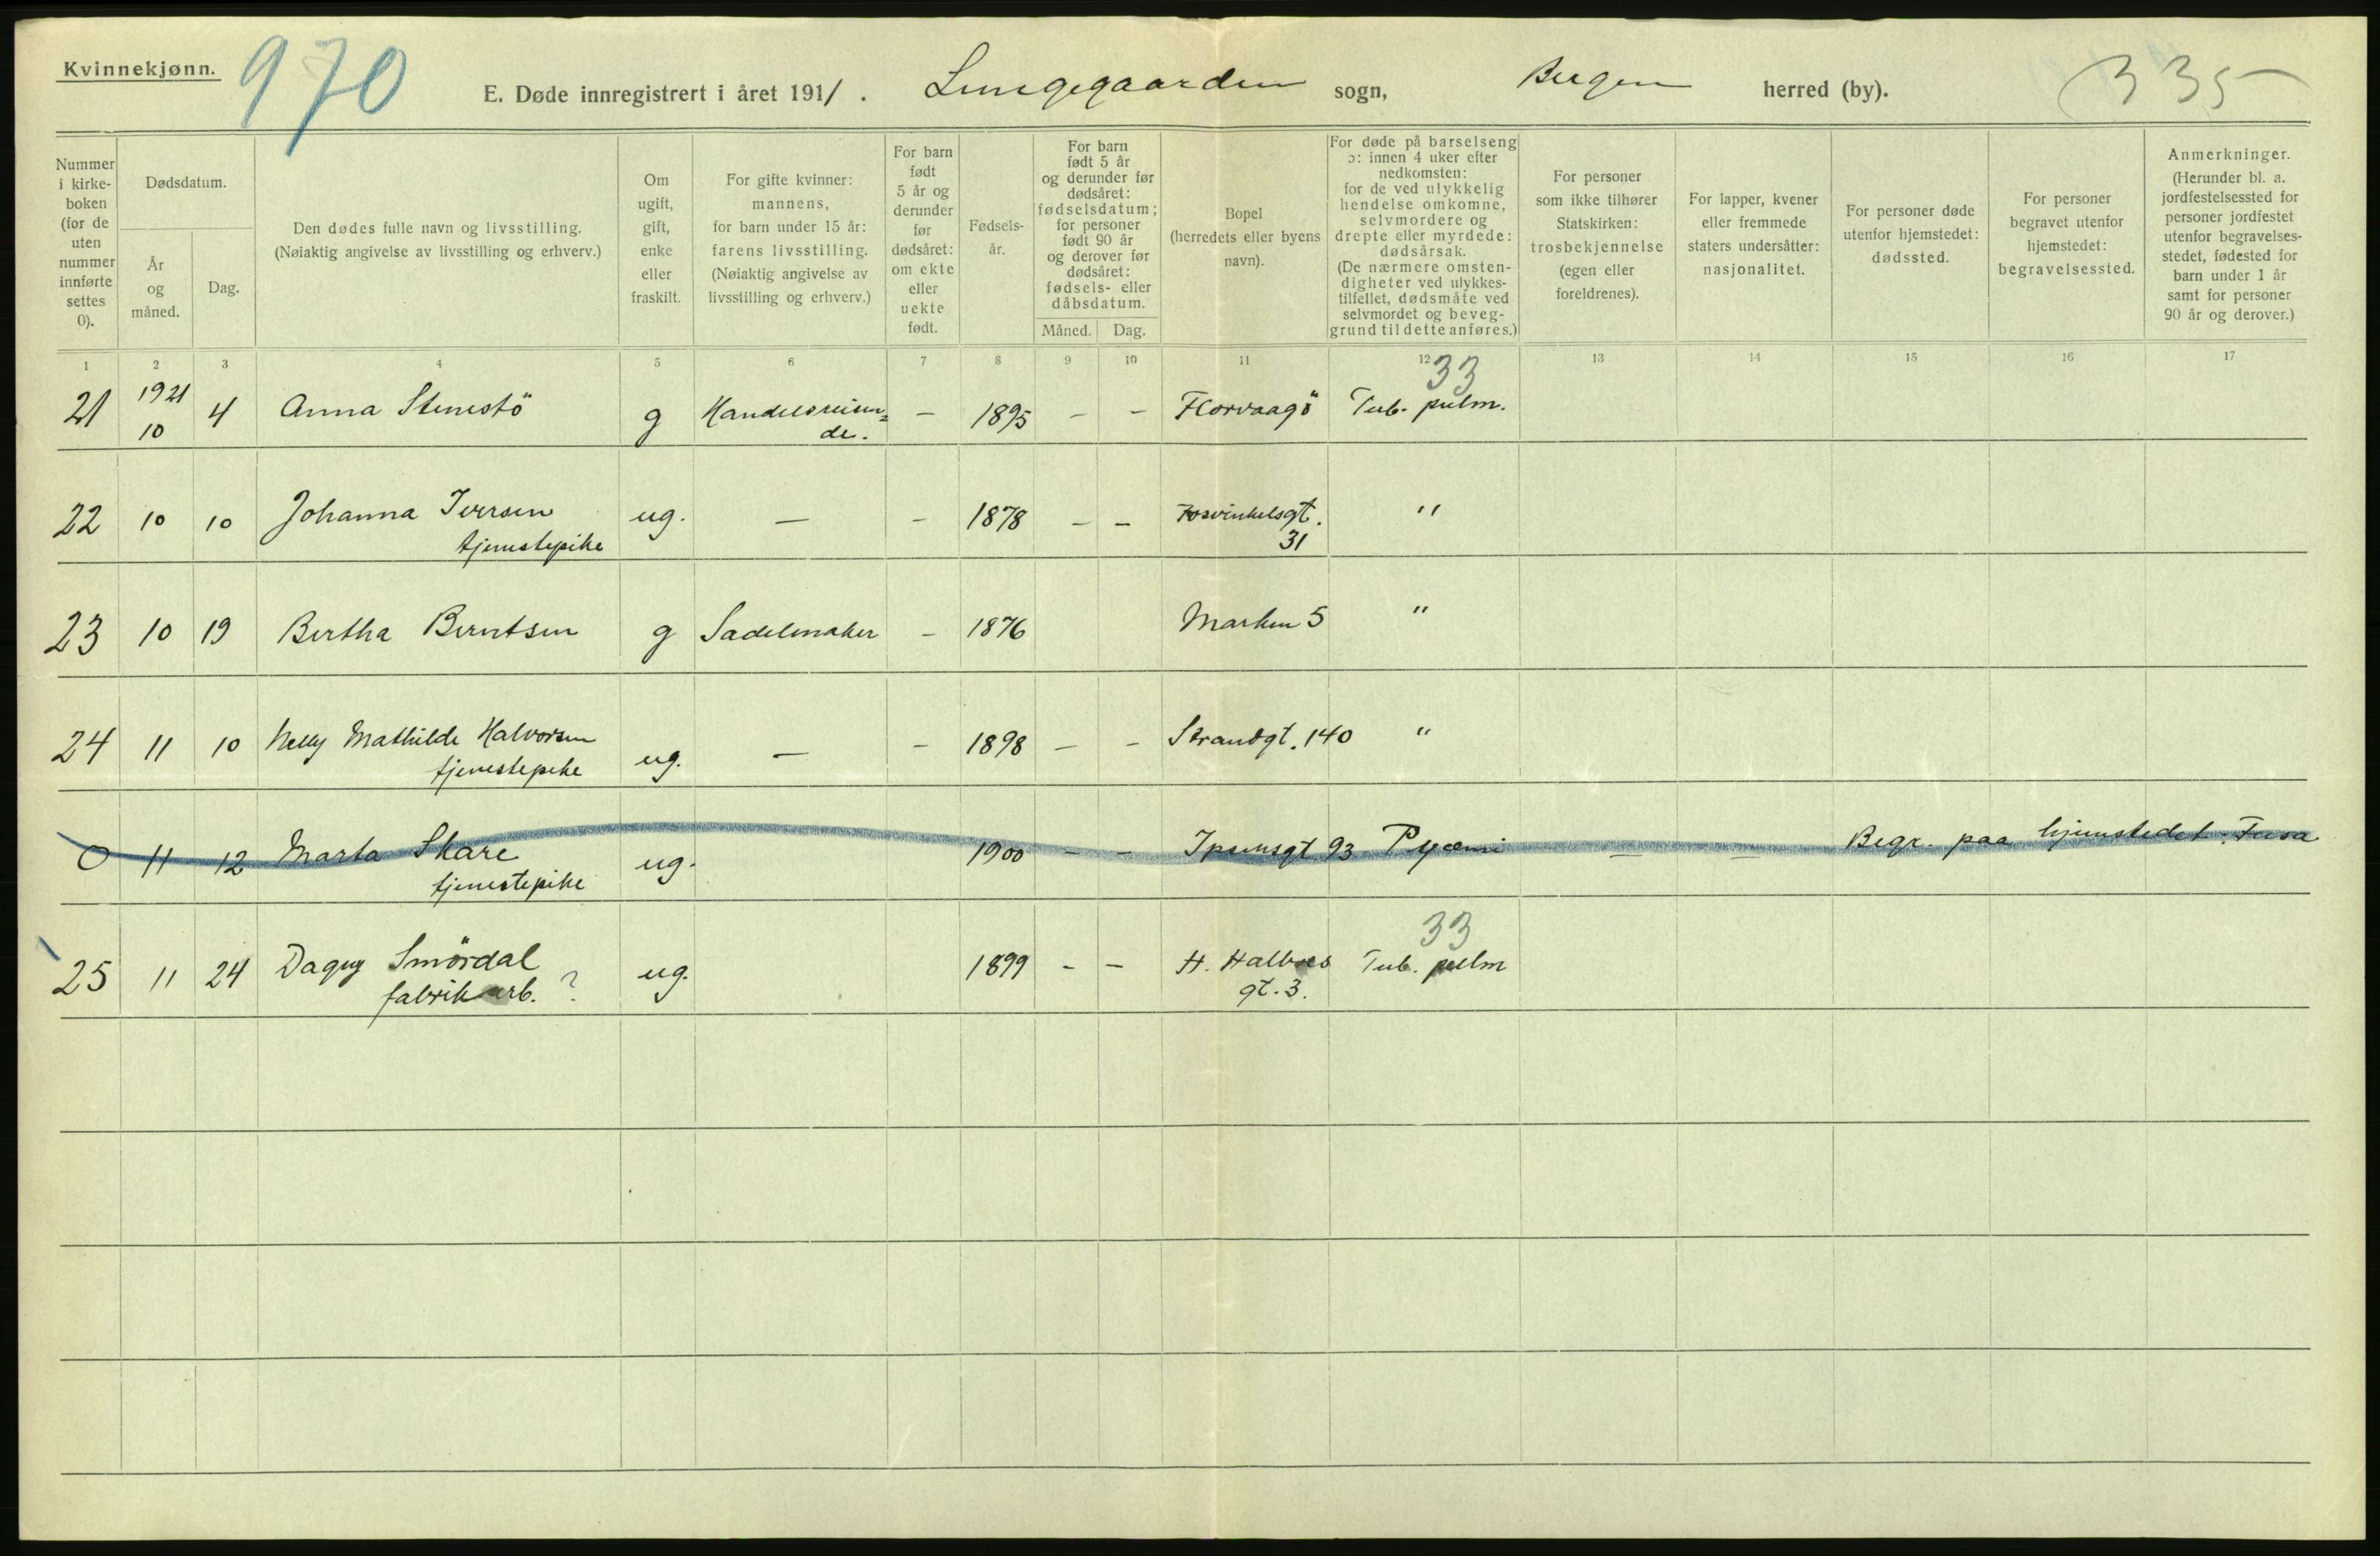 Kvinnekjønn.
970
E. Døde innregistrert i året 191/. Lungegaarden sogn, Bergen herred (by).
335
Nummer i kirke- boken (for de uten nummer innførte settes 0).
Dødsdatum.
År og måned.
Dag.
Den dødes fulle navn og livsstilling.
(Nøiaktig angivelse av livsstilling og erhverv.)
Om ugift, gift, enke eller fraskilt.
For gifte kvinner: mannens, for barn under 15 år: farens livsstilling. (Nøiaktig angivelse av livsstilling og erhverv.)
For barn født 5 år og derunder før dødsåret: om ekte eller uekte født.
Fødsels- år.
For barn født 5 år og derunder før dødsåret: fødselsdatum; for personer født 90 år og derover før dødsåret: fødsels- eller dåbsdatum.
Måned. Dag.
Bopel (herredets eller byens navn).
For døde på barselseng ɔ: innen 4 uker efter nedkomsten: for de ved ulykkelig hendelse omkomne, selvmordere og drepte eller myrdede: dødsårsak. (De nærmere omsten- digheter ved ulykkes- tilfellet, dødsmåte ved selvmordet og beveg- grund til dette anføres.)
For personer som ikke tilhører Statskirken: trosbekjennelse (egen eller foreldrenes).
For lapper, kvener eller fremmede staters undersåtter: nasjonalitet.
For personer døde utenfor hjemstedet: dødssted.
For personer begravet utenfor hjemstedet: begravelsessted.
Anmerkninger. (Herunder bl. a. jordfestelsessted for personer jordfestet utenfor begravelses- stedet, fødested for barn under 1 år samt for personer 90 år og derover.)
1 2 3 4 5 6 7 8 9 10 11 12 13 14 15 16 17
33
21 1921 10 4 Anna Stenestö g Handelsreisen= de. - 1895 - - Florvaagö Tub. pulm.
22 10 10 Johanna Iversen ug. — - 1878 - - Fosvinkelsgt. "
tjenestepike 31
23 10 19 Bertha Berntsen g Sadelmaker - 1876 Marken 5 "
24 11 10 Nelly Mathilde Halvorsen ug. — - 1898 - - Strandgt. 140 "
tjenestepike
0 11 12 Marta Skare ug. 1900 - - Ipsensgt 93 Pyæmi — — Begr. paa hjemstedet: Fusa
tjenestepike
33
25 11 24 Dagny Smördal ug. 1899 - - H. Halbes Tub. pulm
fabrikarb. ? gt. 3.